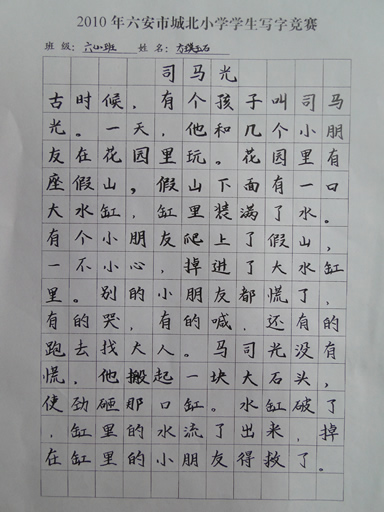 2010年六安市城北小学学生写字竞赛
班 级：六(4)班 姓 名：方琪石
司马光
古时候，有个孩子叫司马
光。一天，他和几个小朋
友在花园里玩。花园里有
座假山，假山下面有一口
大水缸，缸里装满了水。
有个小朋友爬上了假山，
一不小心，掉进了大水缸
里。别的小朋友都慌了，
有的哭，有的喊，还有的
跑去找大人。马司光没有
慌，他搬起一块大石头，
使劲砸那口缸。水缸破了
，缸里的水流了出来，掉
在缸里的小朋友得救了。